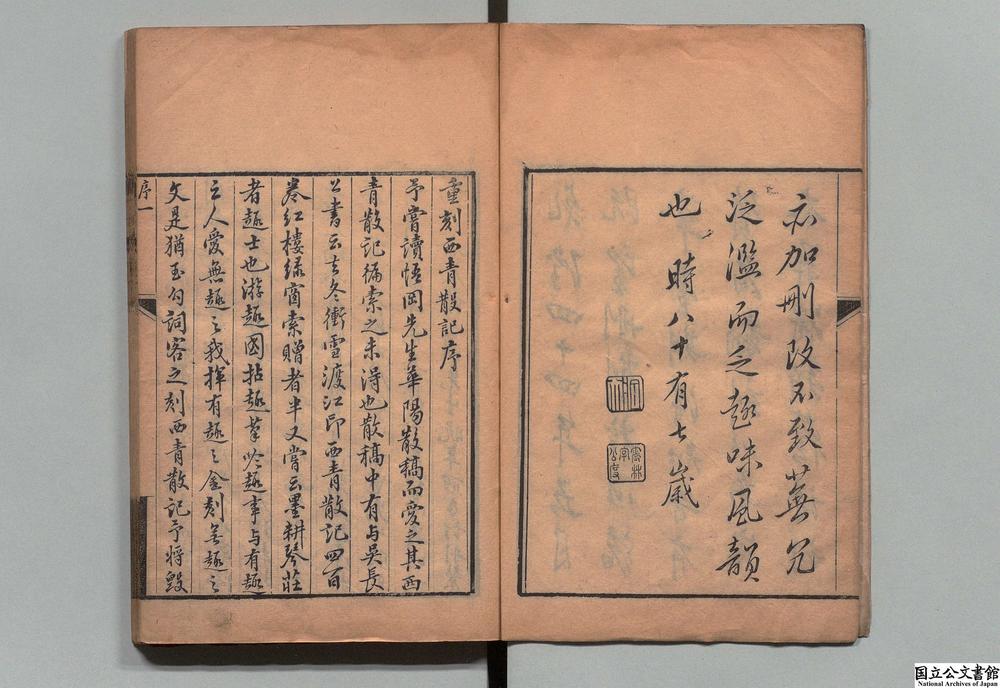 亦加刪改不致蕪冗
泛濫而乏趣味風韻
也時八十有七歲
重刻西青散記序
予嘗讀悟岡先生華陽散稿而愛之其西
青散記徧索之未得也散稿中有与吳長
公書云去冬衝雪渡江印西青散記四百
卷紅樓綠窗索贈者半又嘗云墨耕琴莊
者趣士也游趣國拈趣筆吟趣事与有趣
之人愛無趣之我揮有趣之金刻無趣之
文是猶玉勾詞客之刻西青散記予將毀
序一
国立公文書館
National Archives of Japan